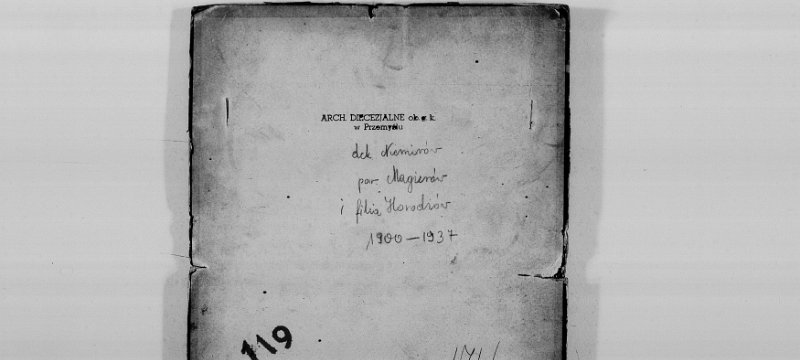 ARCH. DIECEZJALNE ob. g. k.
w Przemyślu
dek Niemirów
par. Magierów
i filia Horodzów
1900—1937
119